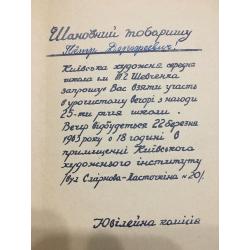 Шановний товаришу
Петр Влодкоревич!
Київська художня середня
школа ім Т.Г. Шевченка
запрошує Вас взяти участь
в урочистому вечорі з нагоди
25-ти річчя школи.
Вечір відбудеться 22 березня
1963 року о 18 годині в
приміщенні Київського
художнього інституту
/вул Смірнова-Ласточкіна №20/.
Ювілейна комісія